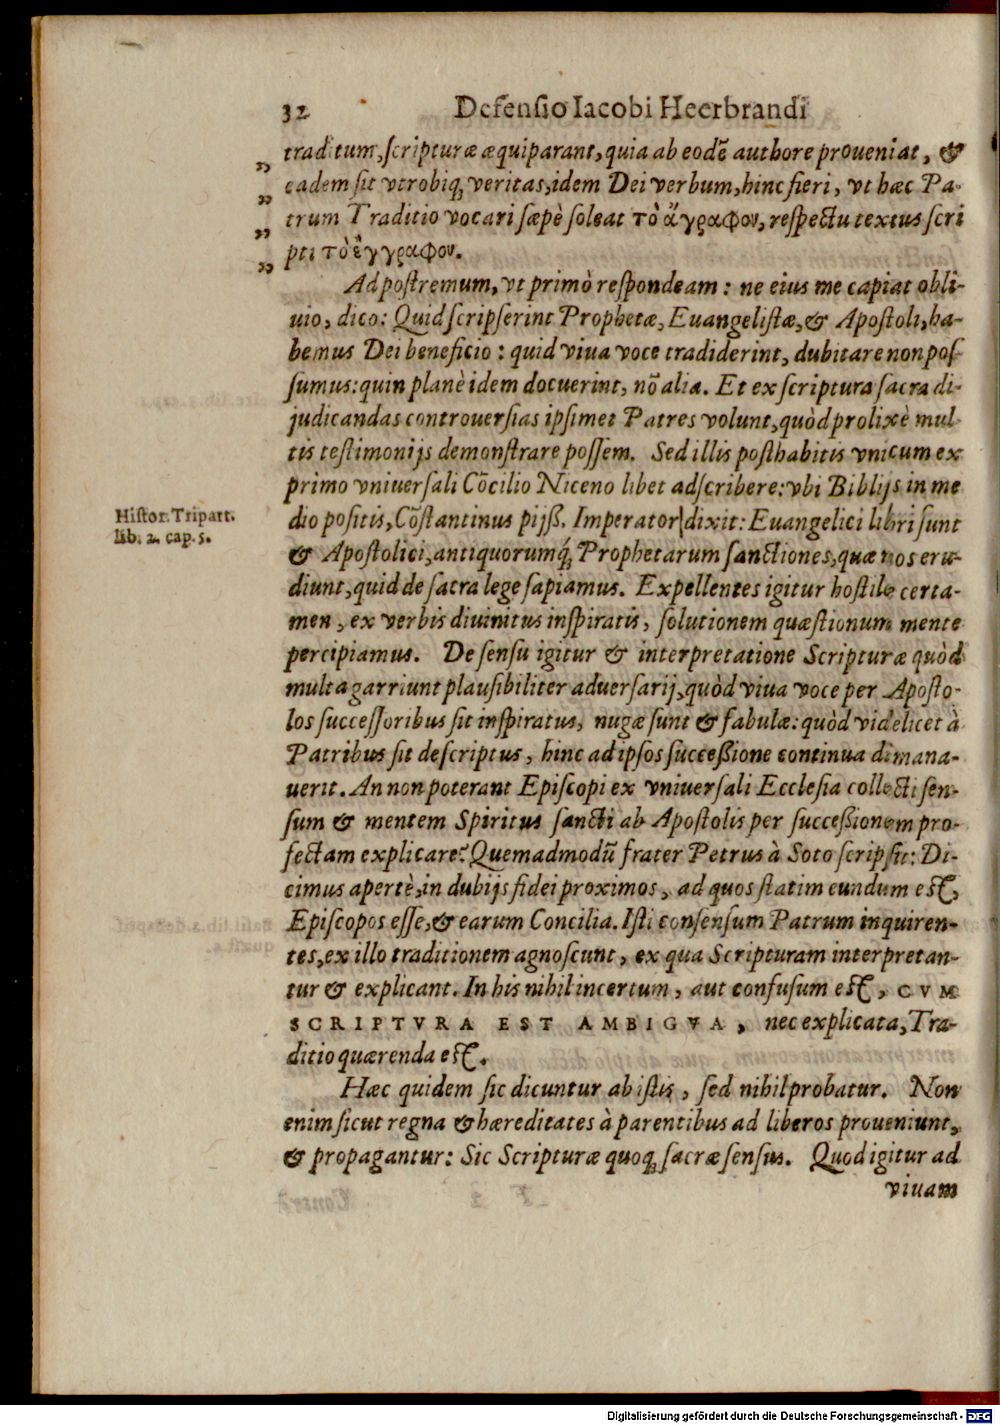 32 Defensio Iacobi Heerbrandi
traditum, scripturæ æquiparant, quia ab eodẽ authore proueniat, &
„ eadem sit vtrobiq; veritas, idem Dei verbum, hinc fieri, vt hæc Pa-
„ trum Traditio vocari sæpè soleat τὸ ἄγραφον, respectu textus scri
„ pti τὸ ἔγγραφον.
„
Ad postremum, vt primò respondeam: ne eius me capiat obli-
uio, dico: Quid scripserint Prophetæ, Euangelistæ, & Apostoli, ha-
bemus Dei beneficio: quid viua voce tradiderint, dubitare non pos-
sumus: quin planè idem docuerint, nõ alia. Et ex scriptura sacra di-
judicandas controuersias ipsimet Patres volunt, quòd prolixè mul-
tis testimonijs demonstrare possem. Sed illis posthabitis vnicum ex
primo vniuersali Cõcilio Niceno libet adscribere: vbi Biblijs in me
Histor. Tripart.
lib. 2. cap. 5.
dio positis, Cõstantinus pijß. Imperator dixit: Euangelici libri sunt
& Apostolici, antiquorumq́; Prophetarum sanctiones, quæ nos eru-
diunt, quid de sacra lege sapiamus. Expellentes igitur hostile certa-
men, ex verbis diuinitus inspiratis, solutionem quæstionum mente
percipiamus. De sensu igitur & interpretatione Scripturæ quòd
multa garriunt plausibiliter aduersarij, quòd viua voce per Aposto-
los successoribus sit inspiratus, nugæ sunt & fabulæ: quòd videlicet à
Patribus sit descriptus, hinc ad ipsos succeßione continua dimana-
uerit. An non poterant Episcopi ex vniuersali Ecclesia collecti sen-
sum & mentem Spiritus sancti ab Apostolis per succeßionem pro-
fectam explicare? Quemadmodũ frater Petrus à Soto scripsit: Di-
cimus apertè, in dubijs fidei proximos, ad quos statim eundum est,
Episcopos esse, & earum Concilia. Isti consensum Patrum inquiren-
tes, ex illo traditionem agnoscunt, ex qua Scripturam interpretan-
tur & explicant. In his nihil incertum, aut confusum est, CVM
SCRIPTVRA EST AMBIGVA, nec explicata, Tra-
ditio quærenda est.
Hæc quidem sic dicuntur ab istis, sed nihil probatur. Non
enim sicut regna & hæreditates à parentibus ad liberos proueniunt,
& propagantur: Sic Scripturæ quoq; sacræ sensus. Quod igitur ad
viuam
Digitalisierung gefördert durch die Deutsche Forschungsgemeinschaft - DFG